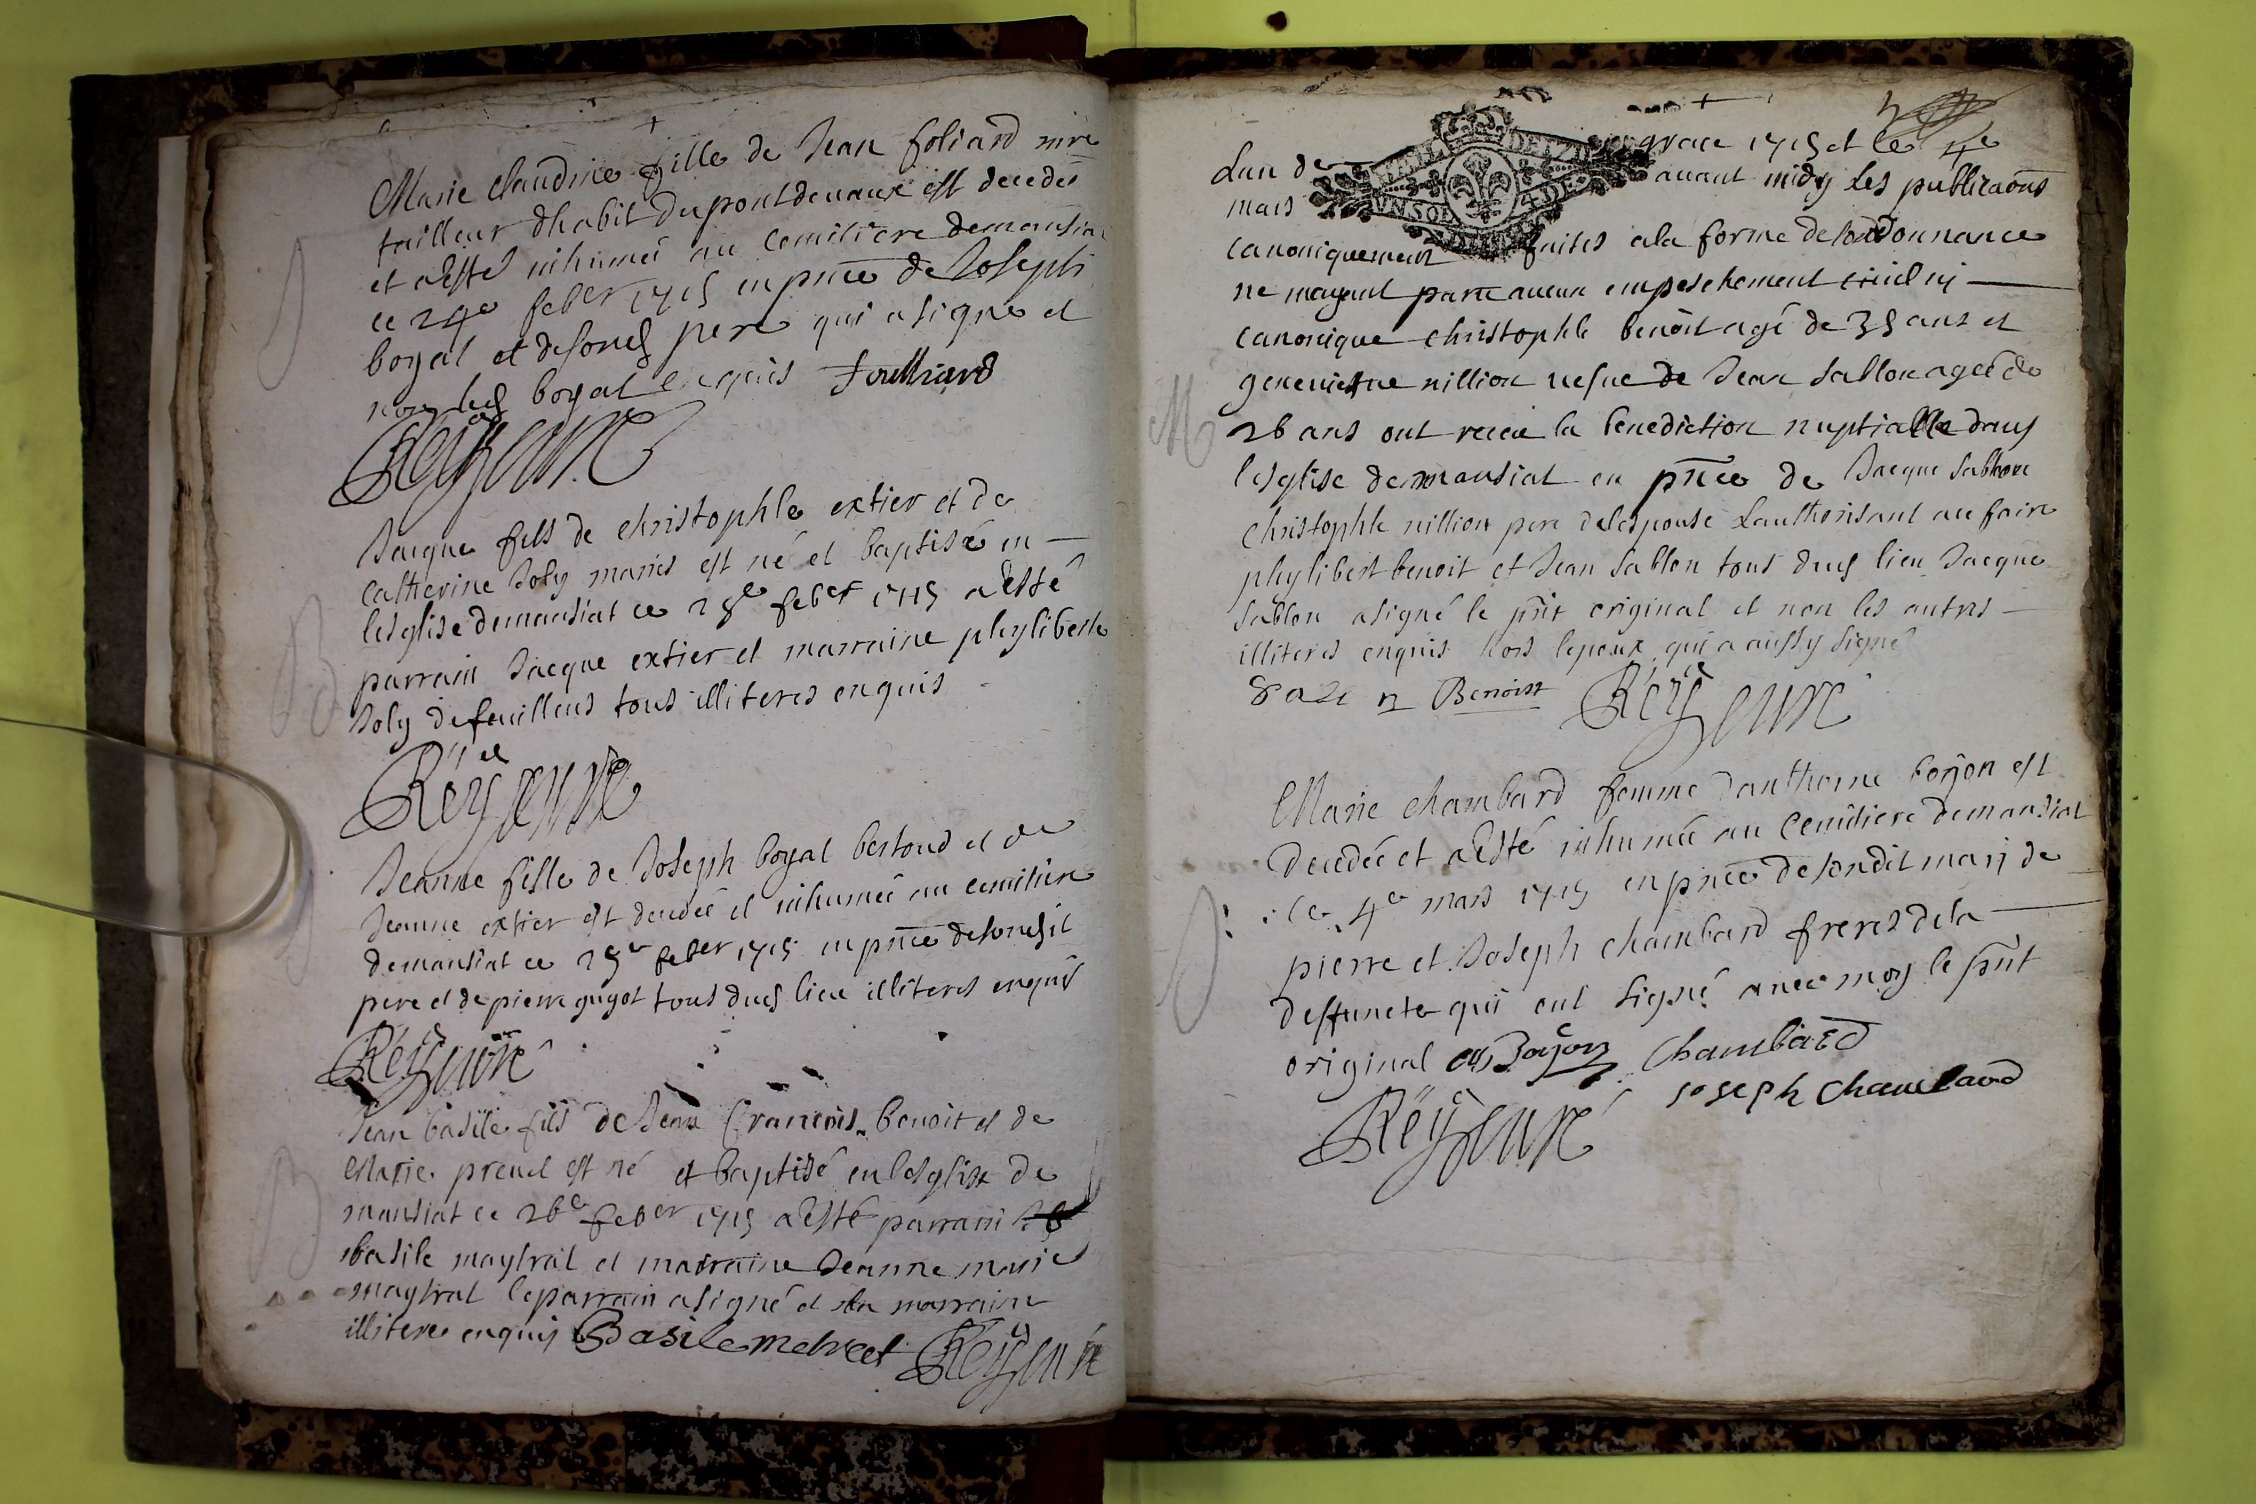 Marie Claudine fille de Jean foliard
tailleur dhabit du pontdevaux est decedéé
et a esté inhumée au Cemitiere demansiat
ce 24e feber 1715 en pnce de Joseph
boyal et desonds pere qui a signé et
non leds boyal enquis foulliard
Reyjeune
D
Jacque fils de Christophle extier et de
Catherine Joly mariés est né et baptisé en
lesglise demansiat ce 25e feber 1715 a esté
parrain Jacque extier et marraine phyliberte
Joly defeuillens tous illiteres enquis
Reyjeune
B
Jeanne fille de Joseph boyal bertoud et de
Jeanne extier est decedée et inhumée au cemitiere
demansiat ce 25e feber 1715 en pnce desondit
pere et de pierre guyot tous duds lieu illiteres enquis
Reyjeune
D
Jean basile fils de Jean François benoit et de
Marie preud est né et baptisé en lesglise de
mansiat ce 26e feber 1715 a esté parrain
basile maytral et marraine Jeanne marie
maytral le parrain a signé et non la marraine
illitere enquis Basile metret Reyjeune
B
Lan de grace 1715 et le 4e
mars avant midy les publicaōns
canoniquement faites ala forme de lordonnance
ne mayant paru aucun empeschement civil ni
canonique christophle benoit agé de 35 ans et
genevieve nillion vefve de Jean Sablon agéé de
26 ans ont receu la benediction nuptialle dans
lesglise demansiat en pnce de Jacque Sablon
Christophle nillion pere delespouse Lauthorisant au faire
phylibert benoit et Jean Sablon tous duds lieu Jacque
Sablon a signé le pnt original et non les autres
illiteres enquis hors lepoux qui a aussy signé
Benoist Reyjeune
M
Marie chambard femme danthoine boyon est
Decedéé et a esté inhuméé au Cemitiere demansiat
ce 4e mars 1715 en pnce desondit mary de
pierre et Joseph chambard freres dela
deffuncte qui ont signé avec moy le pnt
original Boyon Chambard
Joseph Chambard
Reyjeune
D